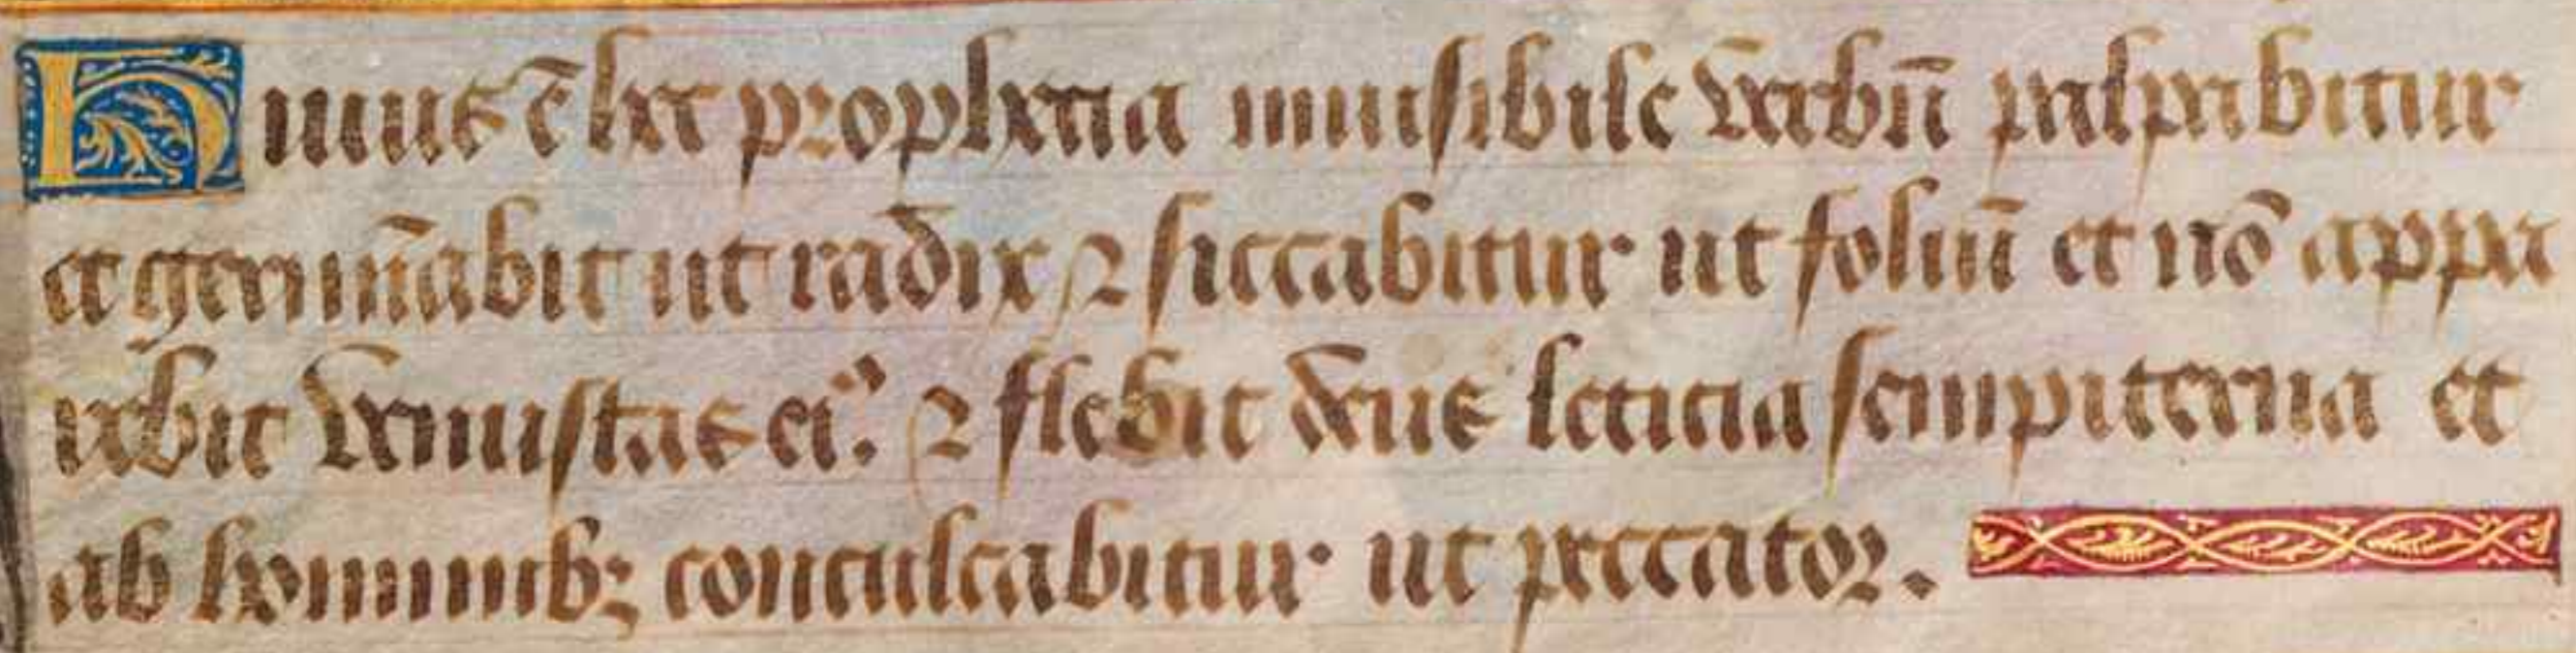 Huius ē hec prophetia inuisibile verbū palpabitur
et germīabit ut radix ⁊ siccabitur ut foliū et nō appa
rebit venustas eiꝰ. ⁊ flebit deus leticia sempiterna et
ab hominibꝫ conculcabitur ut peccator.